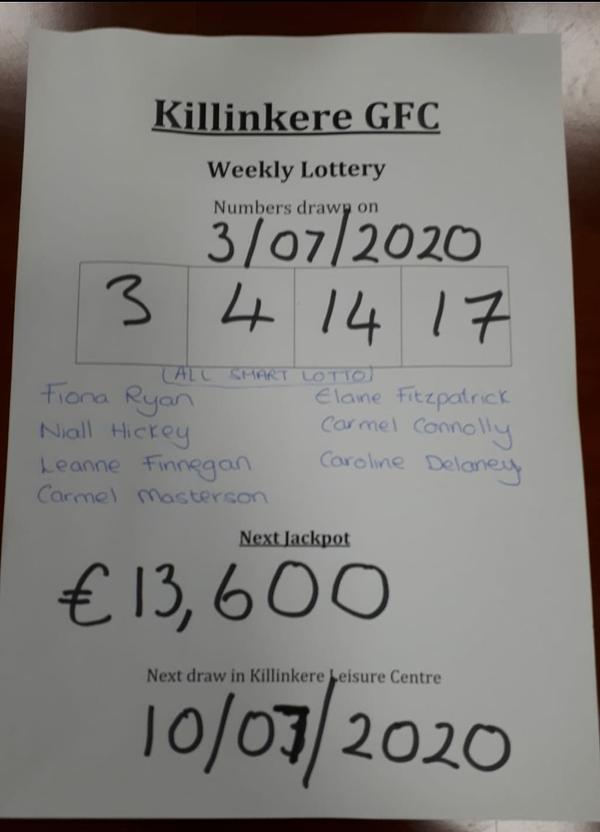 Killinkere GFC
Weekly Lottery
Numbers drawn on
3/07/2020
3 4 14 17
(ALL SMART LOTTO)
Fiona Ryan Elaine Fitzpatrick
Niall Hickey Carmel Connolly
Leanne Finnegan Caroline Delaney
Carmel Masterson
Next Jackpot
€13,600
Next draw in Killinkere Leisure Centre
10/07/2020